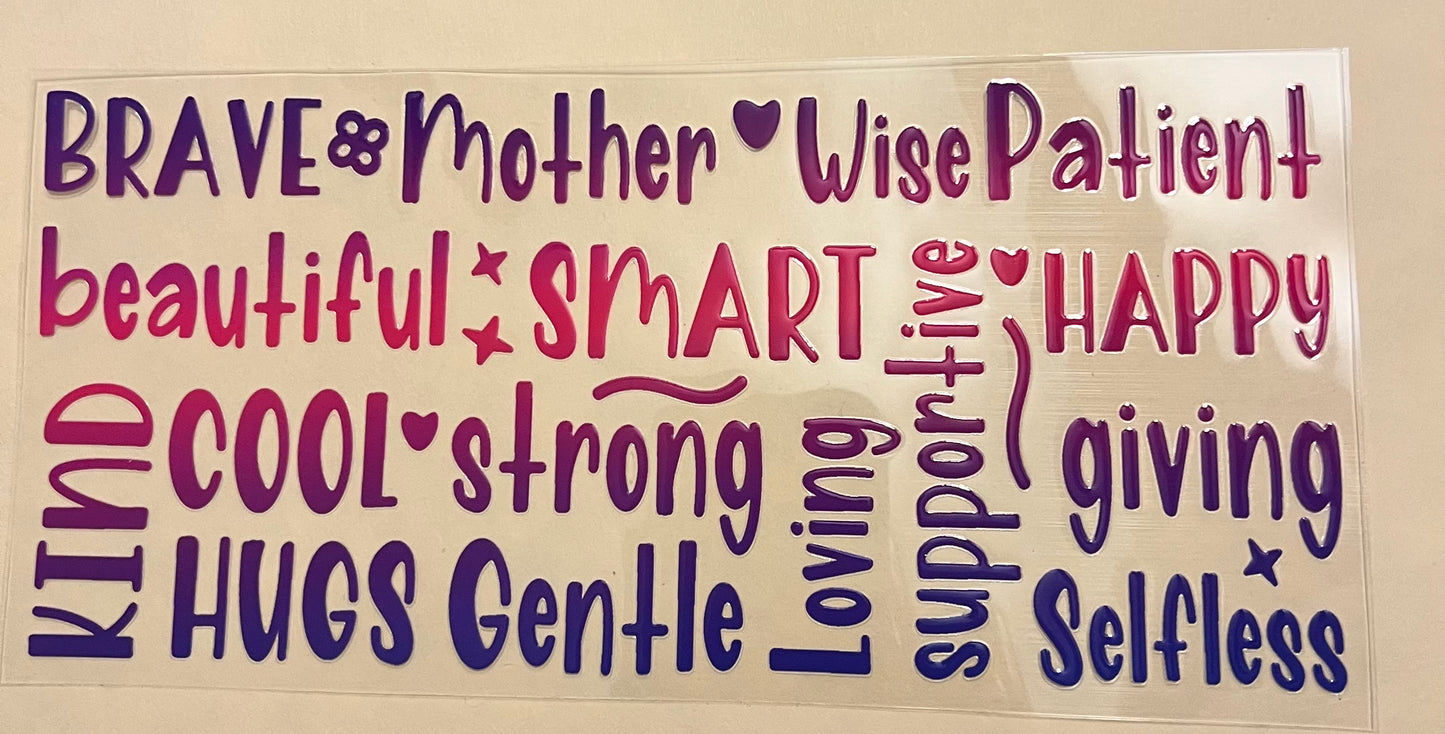 BRAVE Mother Wise Patient
beautiful SMART supportive HAPPY
KIND COOL strong Loving giving
HUGS Gentle Selfless